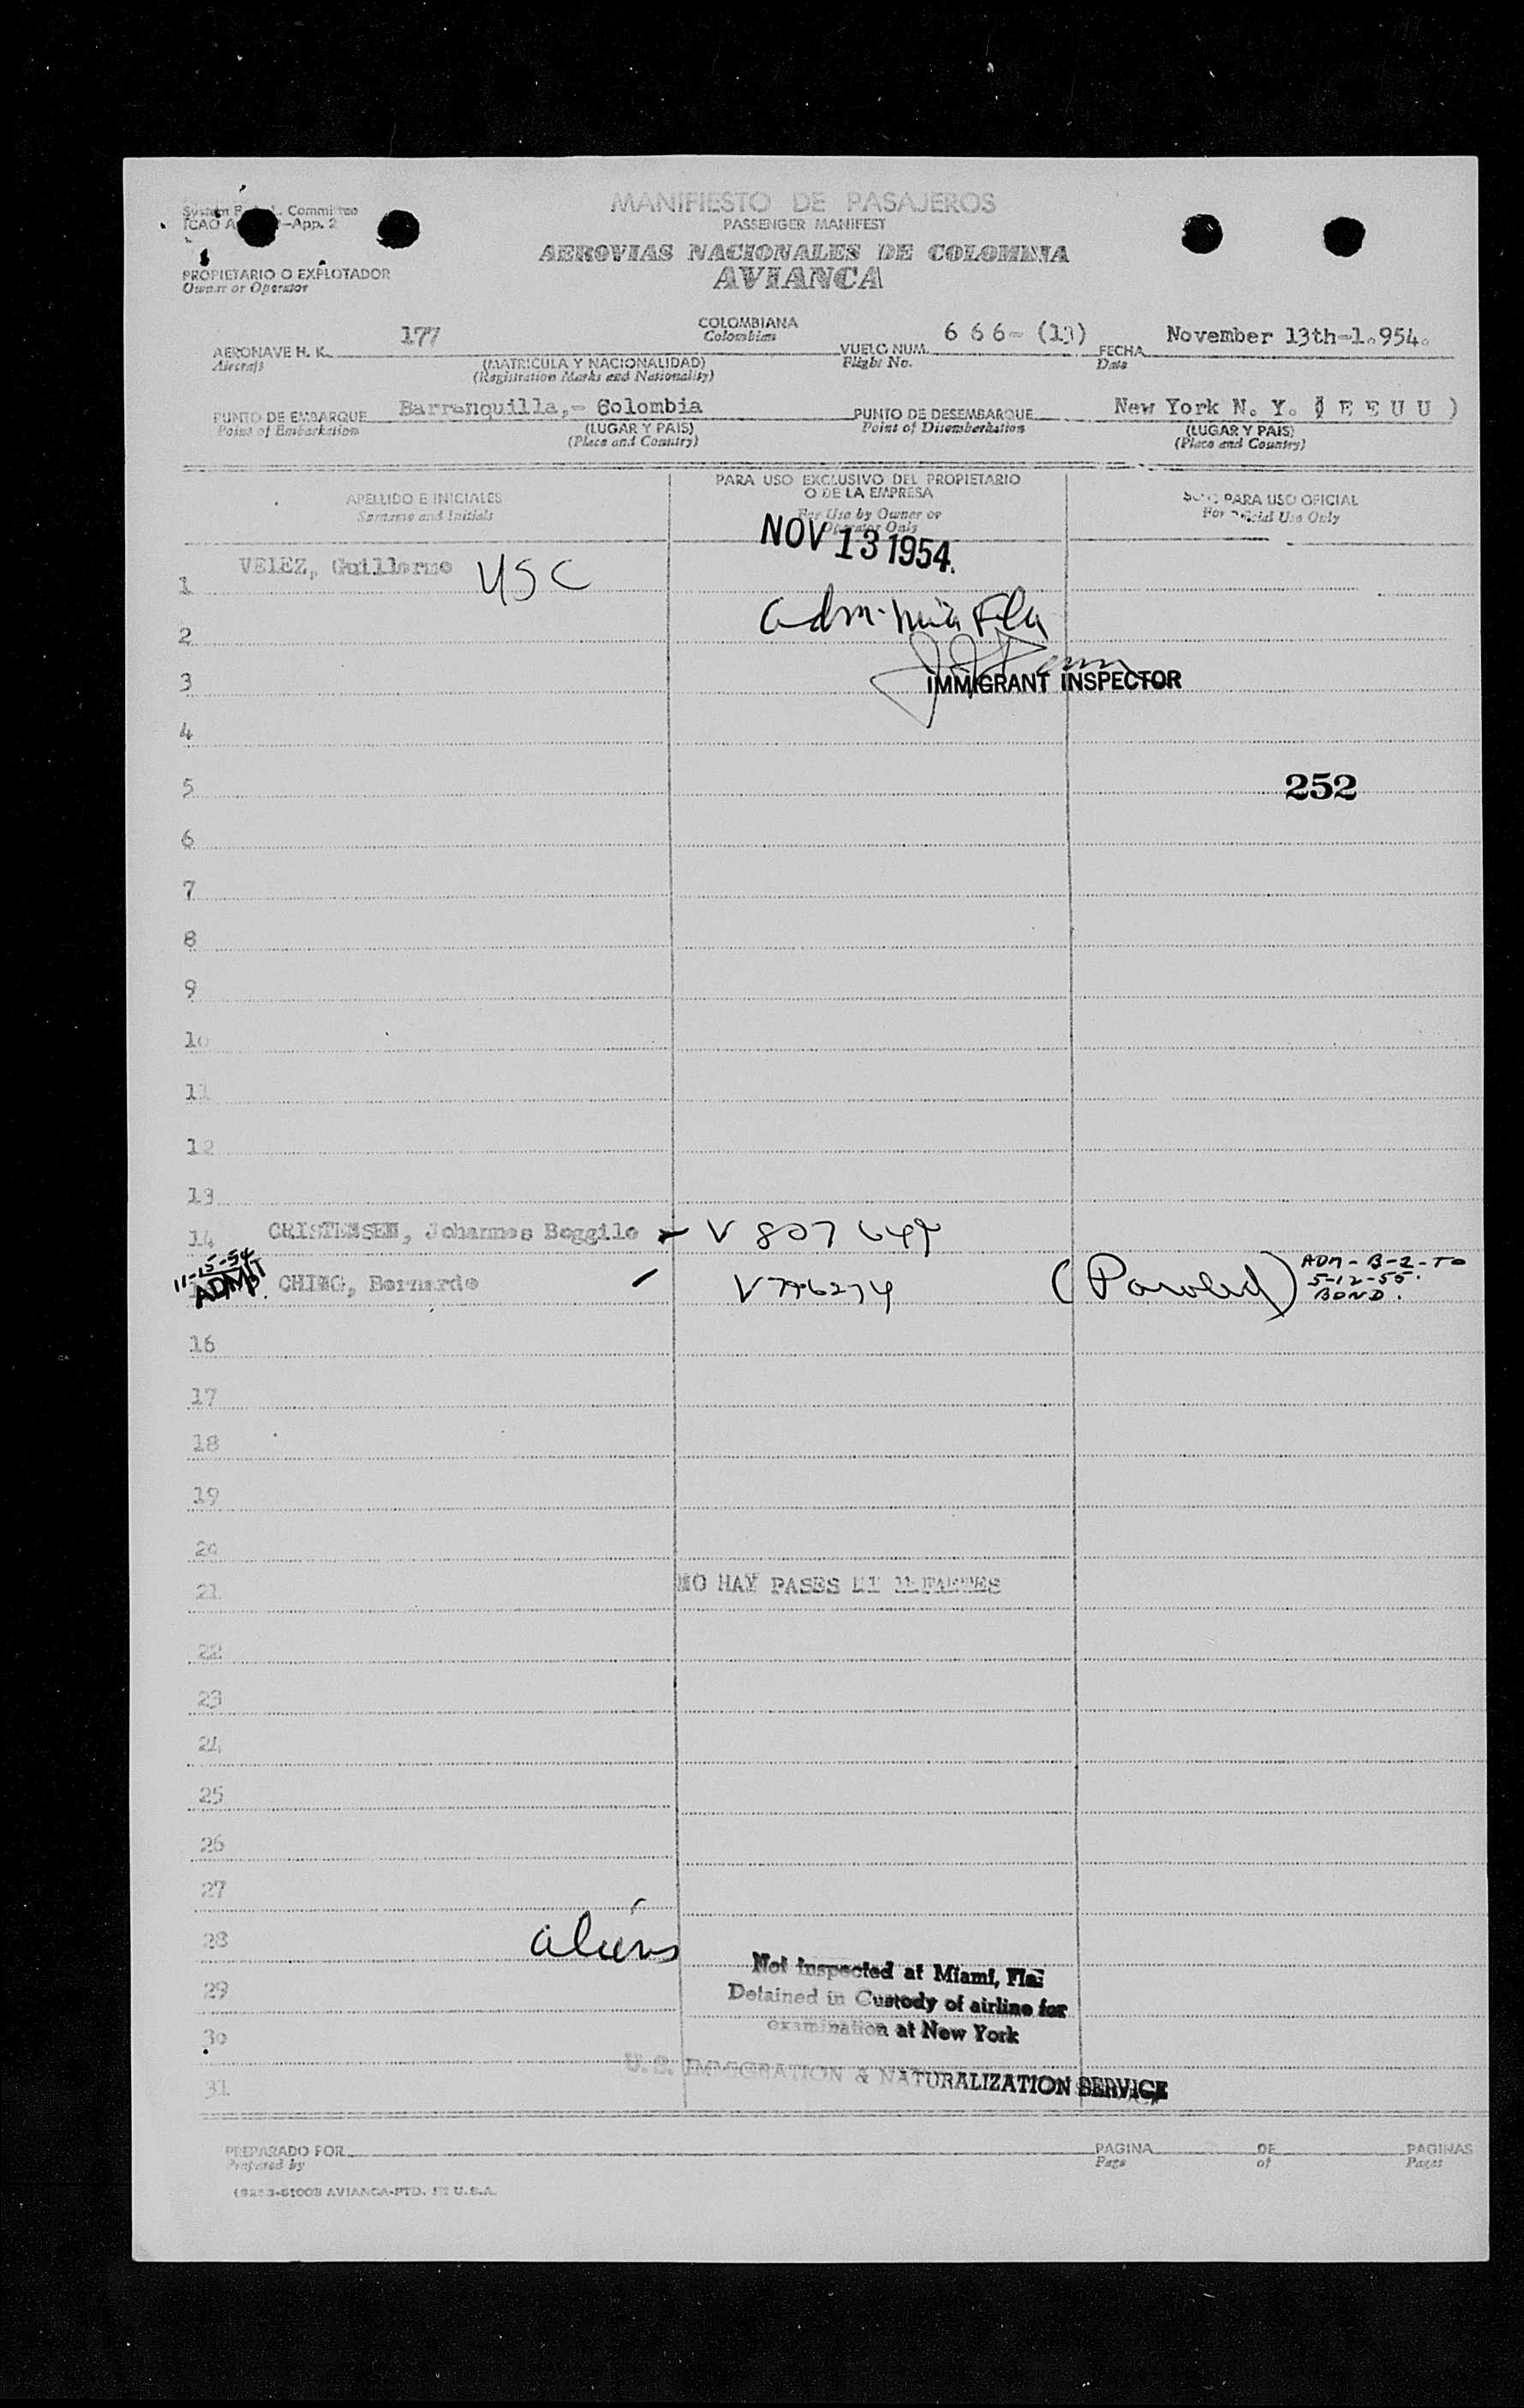 MANIFIESTO DE PASAJEROS
PASSENGER MANIFEST
System Committee
ICAO A -App. 2
AEROVIAS NACIONALES DE COLOMBIA
AVIANCA
PROPIETARIO O EXPLOTADOR
Owner or Operator
AERONAVE H. K. 177 COLOMBIANA VUELO NUM. 6 6 6- (13) FECHA November 13th-1.954.
Aircraft Colombian Flight No. Date
(MATRICULA Y NACIONALIDAD)
(Registration Marks and Nationality)
PUNTO DE EMBARQUE Barranquilla,- Colombia PUNTO DE DESEMBARQUE New York N. Y. ( E E U U )
Point of Embarkation (LUGAR Y PAIS) Point of Disembarkation (LUGAR Y PAIS)
(Place and Country) (Place and Country)
APELLIDO E INICIALES
Surname and Initials
PARA USO EXCLUSIVO DEL PROPIETARIO
O DE LA EMPRESA
For Use by Owner or
Operator Only
SOLO PARA USO OFICIAL
For Official Use Only
NOV 13 1954
1 VELEZ, Guillermo USC
2 adm. Mia Fla
3 IMMIGRANT INSPECTOR
4
5 252
6
7
8
9
10
11
12
13
14 CRISTENSEN, Johannes Boggilo V 807649
11-15-54
ADMIT. CHING, Bernardo (Paroled) ADM - B-2 - TO
5-12-55.
BOND.
16
17
18
19
20
21 NO HAY PASES NI INFANTES
22
23
24
25
26
27
28 aliens
Not inspected at Miami, Fla.
29 Detained in Custody of airline for
30 examination at New York
U. S. IMMIGRATION & NATURALIZATION SERVICE
31
PREPARADO POR PAGINA DE PAGINAS
Prepared by Page of Pages
AVIANCA-PTD. IN U.S.A.